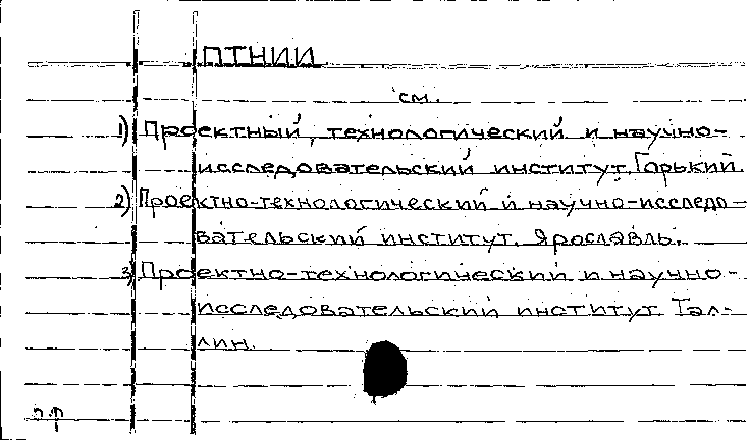 ПТНИИ
см.
1) Проектный, технологический и научно-
исследовательский институт. Горький.
2) Проектно-технологический и научно-исследо-
вательский институт. Ярославль.
3) Проектно-технологический и научно-
исследовательский институт. Тал-
лин.